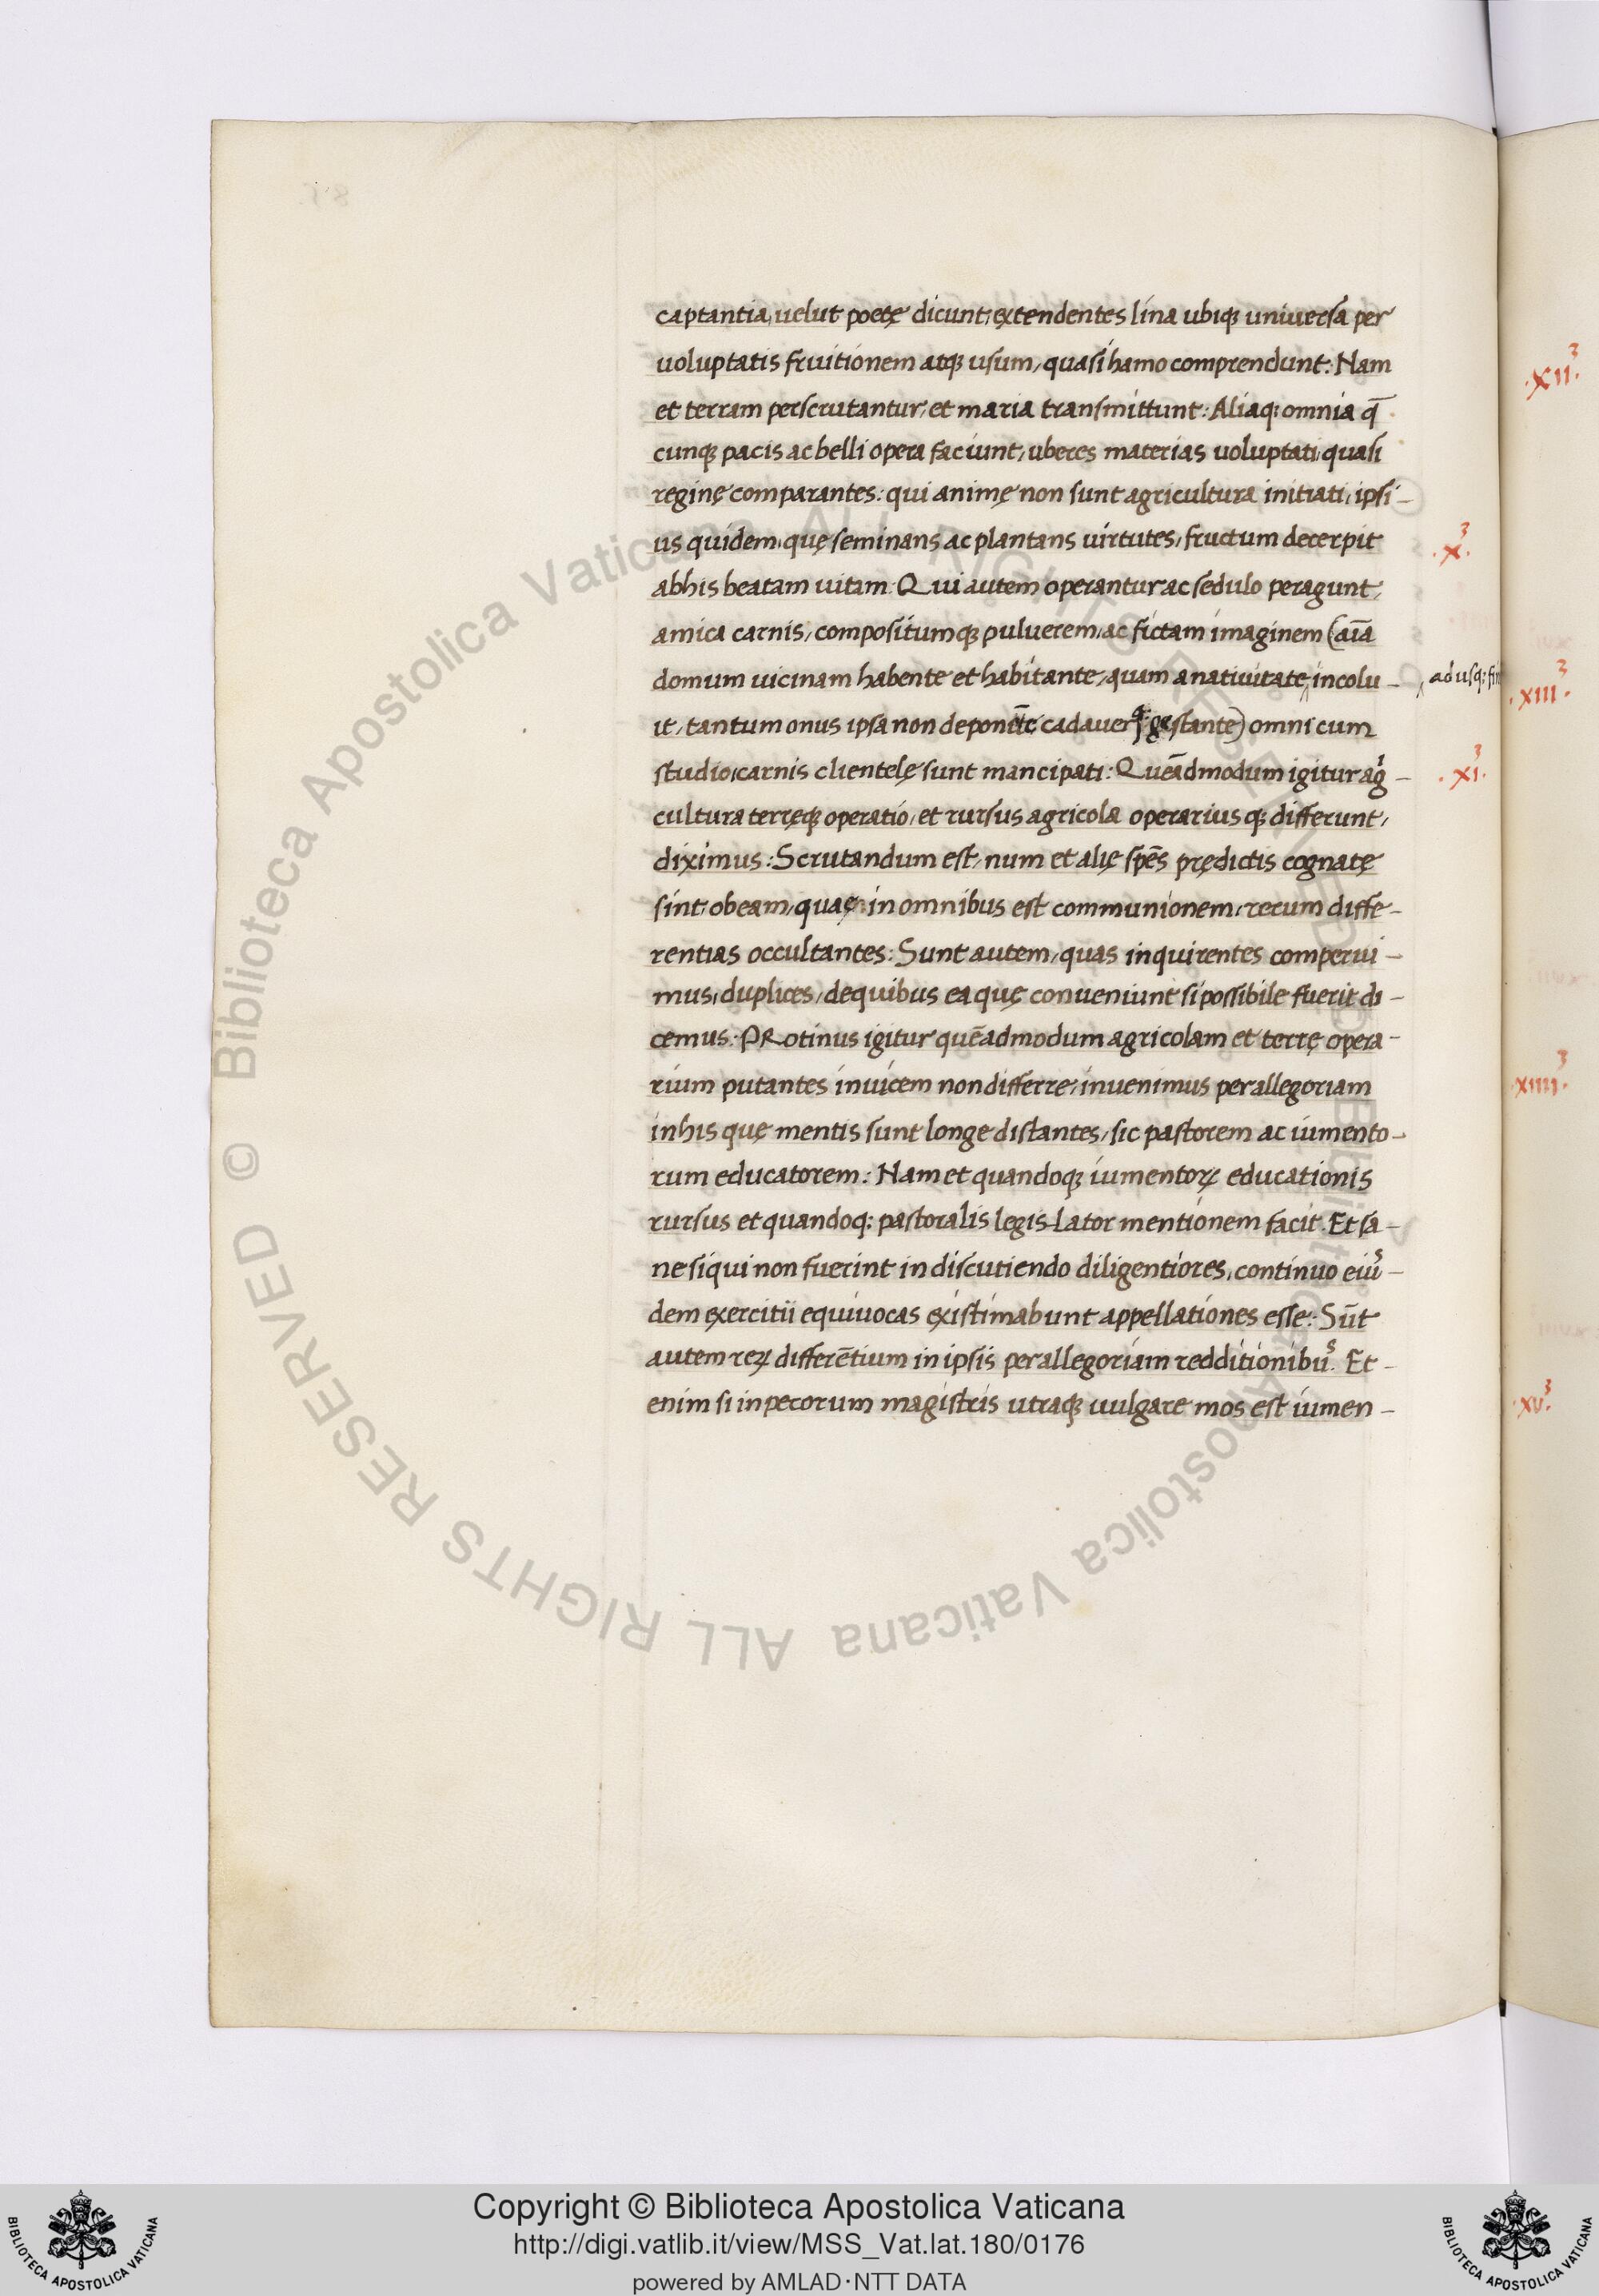 captantia, uelut poetę dicunt, extendentes lina ubiq; uniuersa per
uoluptatis fruitionem atq; usum, quasi hamo comprendunt: Nam
et terram perscrutantur, et maria transmittunt: Aliaq; omnia q̄
cunq; pacis ac belli opera faciunt, uberes materias uoluptati, quasi
reginę comparantes: qui animę non sunt agricultura initiati, ipsi-
us quidem, quę seminans ac plantans uirtutes, fructum decerpit
ab his beatam uitam. Qui autem operantur ac sedulo peragunt,
amica carnis, compositumq; puluerem, ac fictam imaginem (aīa
domum uicinam habente et habitante, quam a natiuitate, incolu-
it, tantum onus ipsa non deponēte cadauerq; gestante) omni cum
studio, carnis clientelę sunt mancipati: Quēadmodum igitur agⁱ-
cultura terręq; operatio, et rursus agricola operariusq; differunt,
diximus: Scrutandum est, num et alię spēs prędictis cognatę
sint, ob eam, quaę in omnibus est communionem, rerum diffe-
rentias occultantes: Sunt autem, quas inquirentes comperui-
mus, duplices, de quibus ea quę conueniunt si possibile fuerit di-
cemus: PRotinus igitur quēadmodum agricolam et terrę opera-
rium putantes inuicem non differre, inuenimus per allegoriam
in his quę mentis sunt longe distantes, sic pastorem ac iumento-
rum educatorem: Nam et quandoq; iumentoꝝ educationis
rursus et quandoq; pastoralis legis-lator mentionem facit. Et sa-
ne siqui non fuerint in discutiendo diligentiores, continuo eiuˢ-
dem exercitii equiuocas existimabunt appellationes esse: Sūt
autem reꝝ differētium in ipsis per allegoriam redditionibuˢ. Et-
enim si in pecorum magistris utraq; uulgare mos est iumen-
ad usq; fin
.X³.
.XI³.
.XII³.
.XIII³.
.XIIII³.
.XV³.
© Biblioteca Apostolica Vaticana ALL RIGHTS RESERVED
© Biblioteca Apostolica Vaticana ALL RIGHTS RESERVED
Copyright © Biblioteca Apostolica Vaticana
http://digi.vatlib.it/view/MSS_Vat.lat.180/0176
powered by AMLAD·NTT DATA
BIBLIOTECA APOSTOLICA VATICANA
BIBLIOTECA APOSTOLICA VATICANA